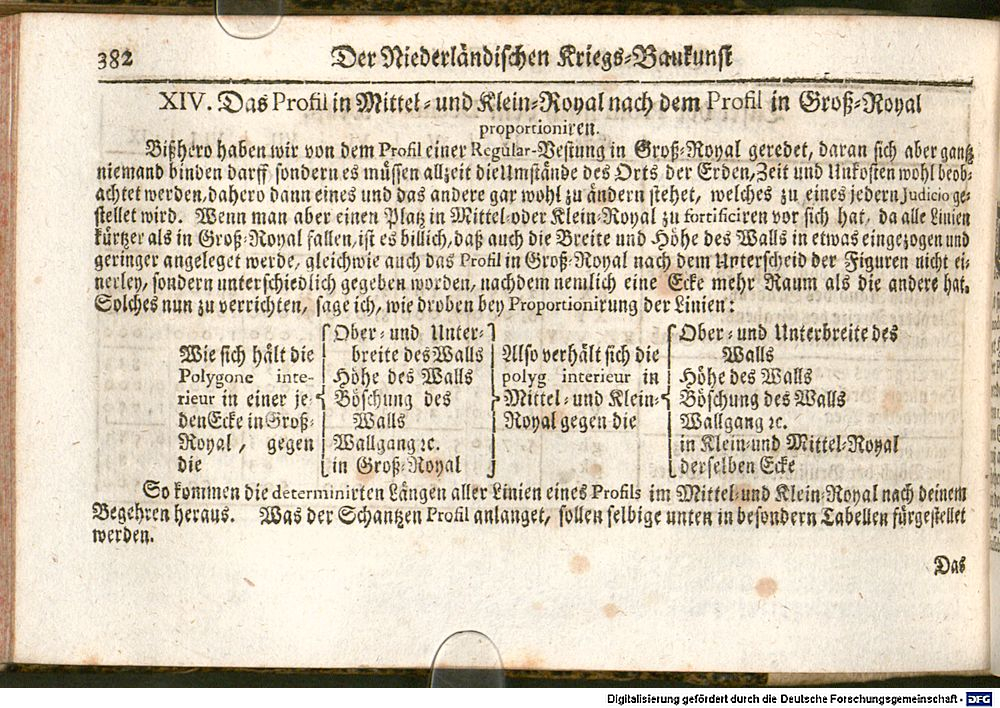 382 Der Niederländischen Kriegs-Baukunst
XIV. Das Profil in Mittel- und Klein-Royal nach dem Profil in Groß-Royal
proportioniren.
Bißhero haben wir von dem Profil einer Regular-Vestung in Groß-Royal geredet, daran sich aber gantz
niemand binden darff, sondern es müssen allzeit die Umstände des Orts der Erden, Zeit und Unkosten wohl beob-
achtet werden, dahero dann eines und das andere gar wohl zu ändern stehet, welches zu eines jedern Judicio ge-
stellet wird. Wenn man aber einen Platz in Mittel- oder Klein-Royal zu fortificiren vor sich hat, da alle Linien
kürtzer als in Groß-Royal fallen, ist es billich, daß auch die Breite und Höhe des Walls in etwas eingezogen und
geringer angeleget werde, gleichwie auch das Profil in Groß-Royal nach dem Unterscheid der Figuren nicht ei-
nerley, sondern unterschiedlich gegeben worden, nachdem nemlich eine Ecke mehr Raum als die andere hat.
Solches nun zu verrichten, sage ich, wie droben bey Proportionirung der Linien:
Wie sich hält die
Polygone inte-
rieur in einer je-
den Ecke in Groß-
Royal, gegen
die
Ober- und Unter-
breite des Walls
Höhe des Walls
Böschung des
Walls
Wallgang ꝛc.
in Groß-Royal
Also verhält sich die
polyg interieur in
Mittel- und Klein-
Royal gegen die
Ober- und Unterbreite des
Walls
Höhe des Walls
Böschung des Walls
Wallgang ꝛc.
in Klein- und Mittel-Royal
derselben Ecke
So kommen die determinirten Längen aller Linien eines Profils im Mittel- und Klein-Royal nach deinem
Begehren heraus. Was der Schantzen Profil anlanget, sollen selbige unten in besondern Tabellen fürgestellet
werden.
Das
Digitalisierung gefördert durch die Deutsche Forschungsgemeinschaft - DFG